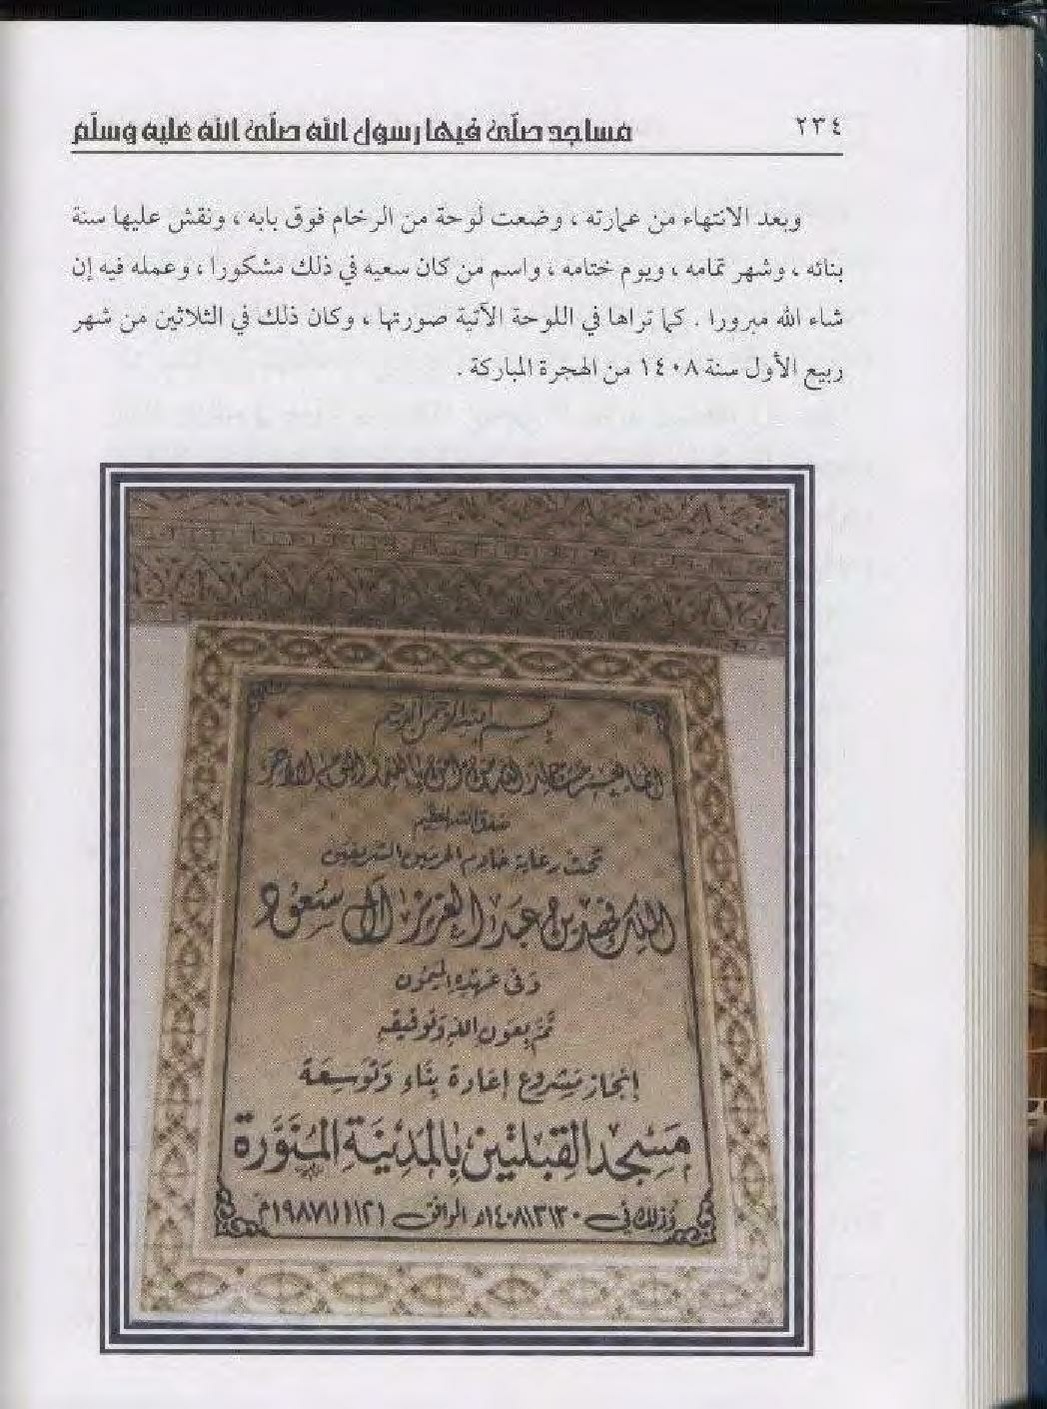 ٢٣٤
مساجد صلّى فيها رسول الله صلّى الله عليه وسلّم
وبعد الانتهاء من عمارته ، وضعت لوحة من الرخام فوق بابه ، ونقش عليها سنة
بنائه ، وشهر تمامه ، ويوم ختامه ، واسم من كان سعيه في ذلك مشكورا ، وعمله فيه إن
شاء الله مبرورا . كما تراها في اللوحة الآتية صورتها ، وكان ذلك في الثلاثين من شهر
ربيع الأول سنة ١٤٠٨ من الهجرة المباركة .
بسم الله الرحمن الرحيم
إنما يعمر مساجد الله من آمن بالله واليوم الآخر
صدق الله العظيم
تحت رعاية خادم الحرمين الشريفين
الملك فهد بن عبد العزيز آل سعود
وَفي عَهْدِهِ الميمُون
تمَّ بِعَونِ اللهِ وَتوفيقهِ
إنجاز مَشروع إعَادة بِنَاءِ وَتَوسِعَة
مَسْجِد القِبْلتَين بِالمَدِينَةِ المُنَوَّرة
وَذلكَ في ١٤٠٨/٣/٣٠هـ الموَافق ١٩٨٧/١١/٢١م